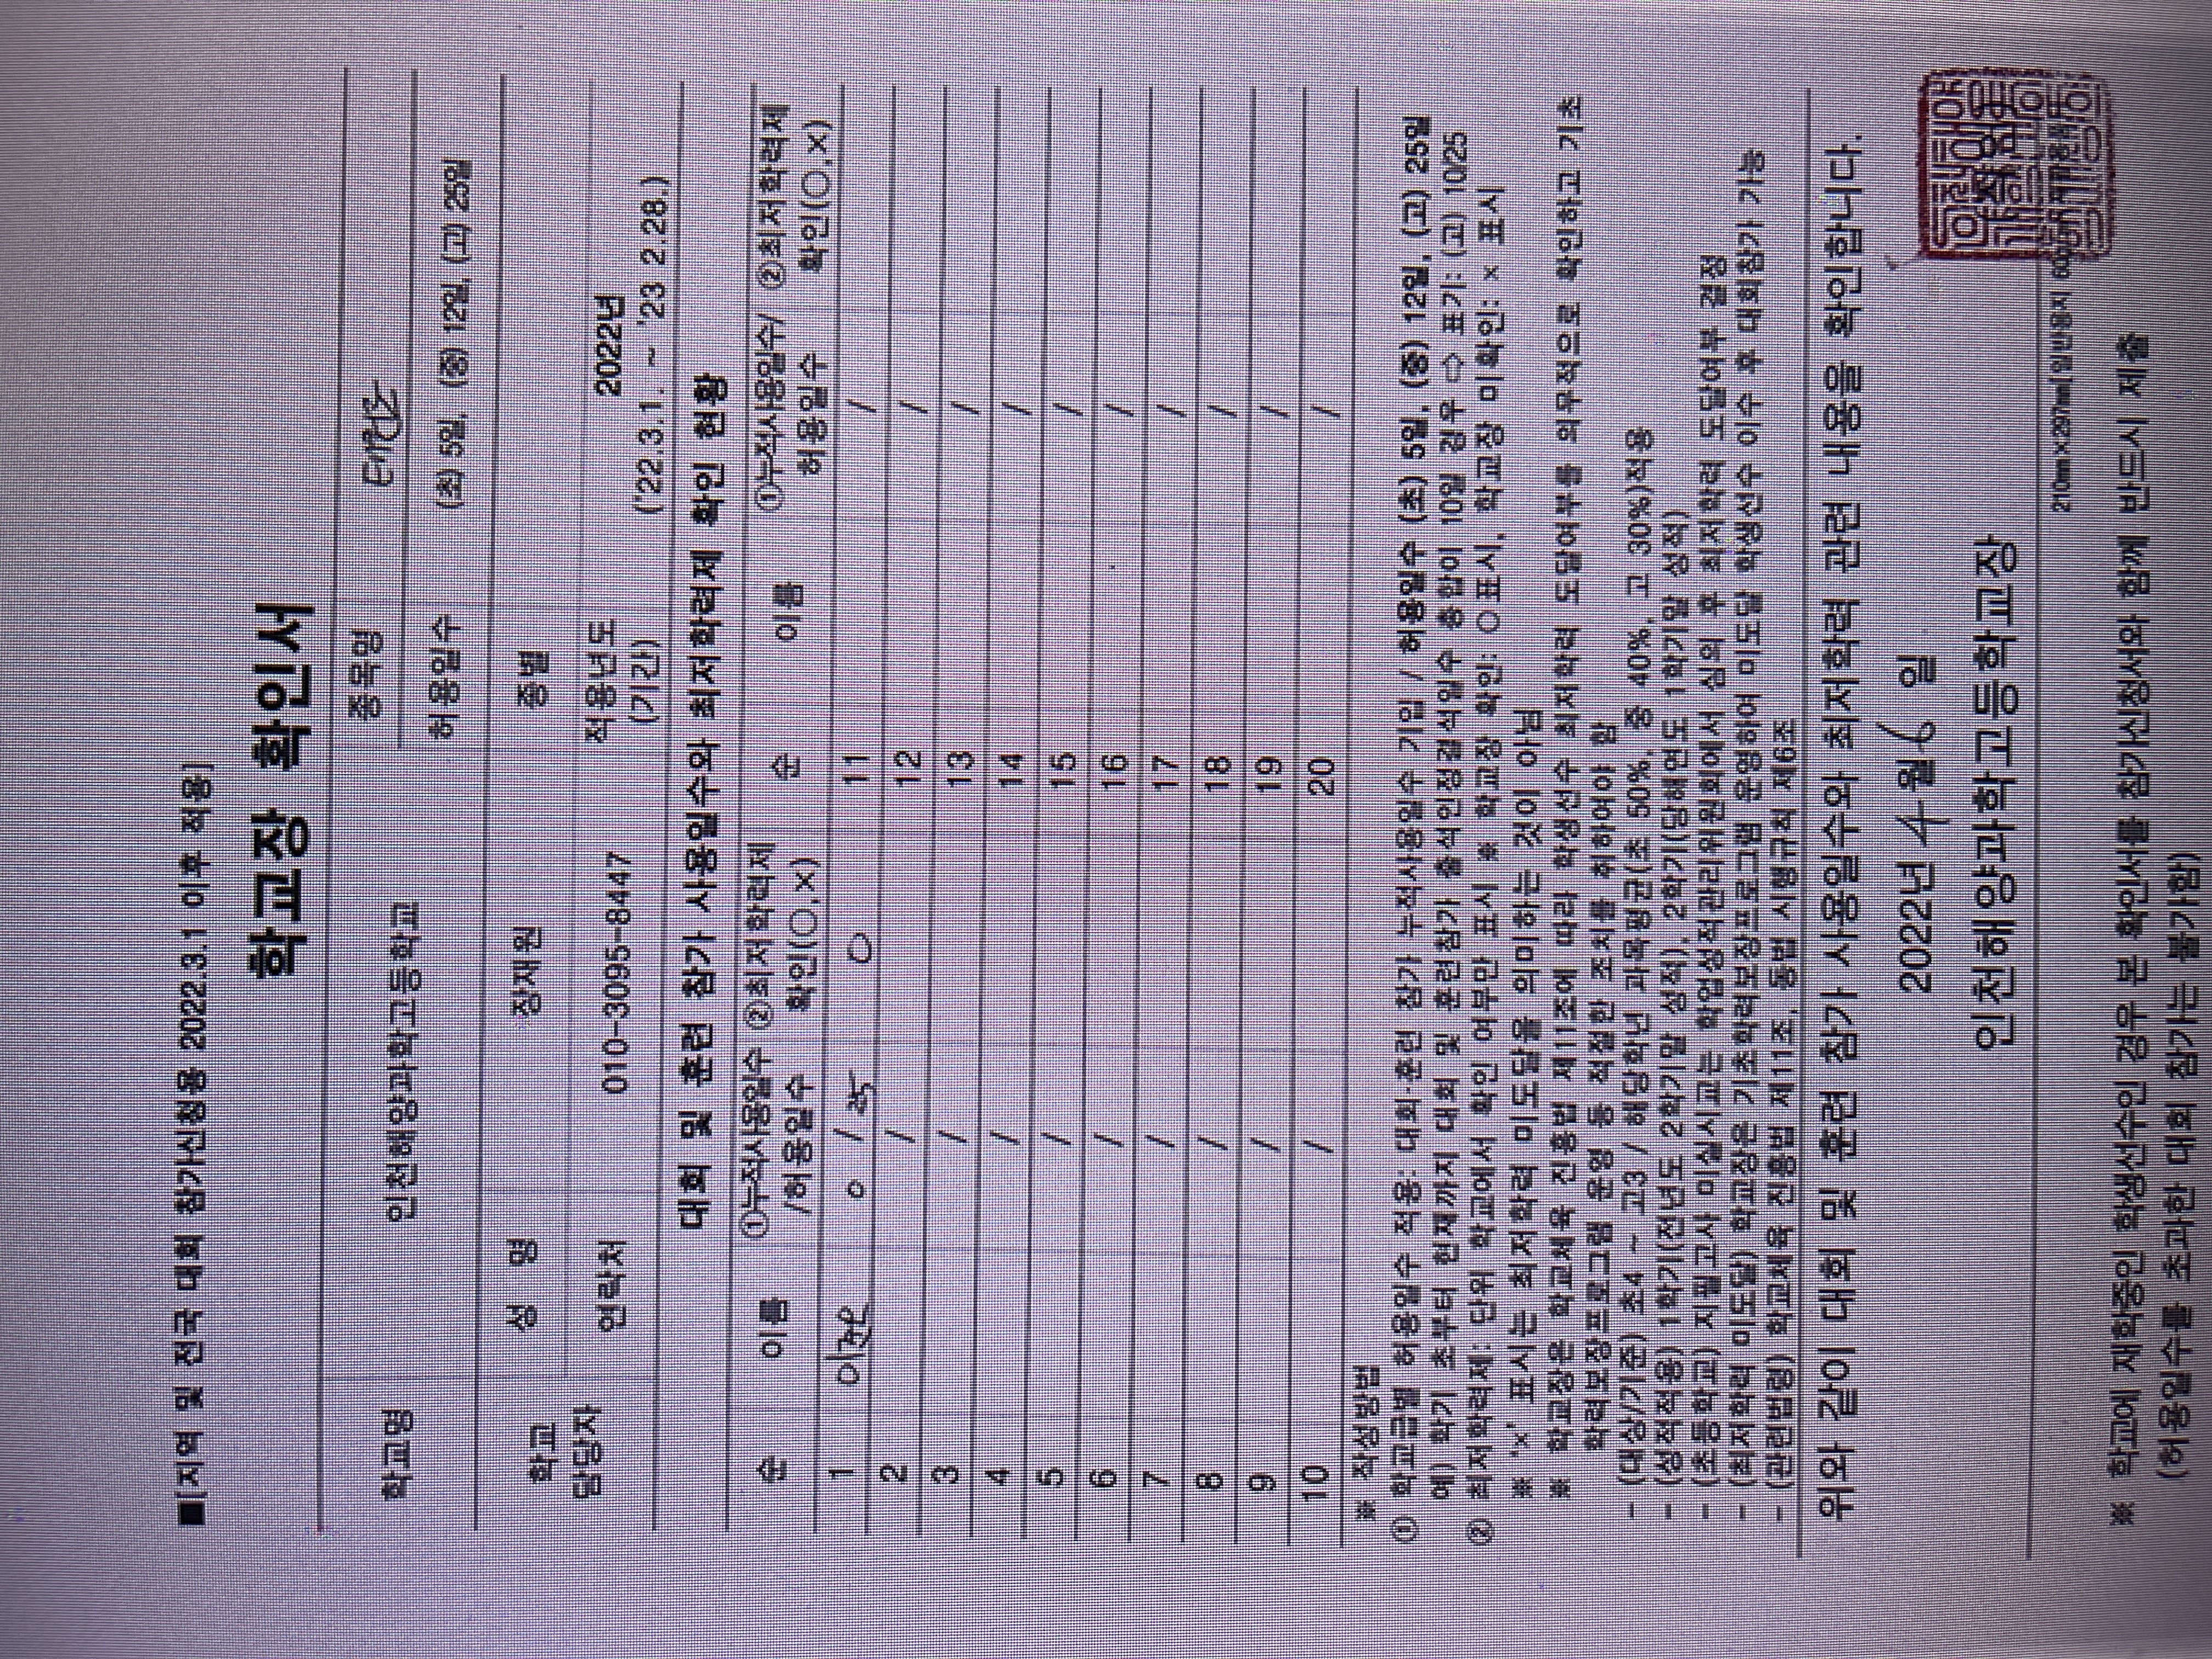 ■[지역 및 전국 대회 참가신청용 2022.3.1 이후 적용]
학교장 확인서
학교명 인천해양과학고등학교 종목명
허용일수 (초) 5일, (중) 12일, (고) 25일
학교 담당자 성 명 장재원 종별
연락처 010-3095-8447 적용년도 (기간) 2022년 ('22.3.1. ~ '23 2.28.)
대회 및 훈련 참가 사용일수와 최저학력제 확인 현황
순 이름 ①누적사용일수 /허용일수 ②최저학력제 확인(○,×) 순 이름 ①누적사용일수/ 허용일수 ②최저학력제 확인(○,×)
1 0 / 25 ○ 11 /
2 / 12 /
3 / 13 /
4 / 14 /
5 / 15 /
6 / 16 /
7 / 17 /
8 / 18 /
9 / 19 /
10 / 20 /
※ 작성방법
① 학교급별 허용일수 적용: 대회·훈련 참가 누적사용일수 기입 / 허용일수 (초) 5일, (중) 12일, (고) 25일
예) 학기 초부터 현재까지 대회 및 훈련참가 출석인정결석일수 총합이 10일 경우 ⇨ 표기: (고) 10/25
② 최저학력제: 단위 학교에서 확인 여부만 표시 ※ 학교장 확인: ○표시, 학교장 미확인: × 표시
※ '×' 표시는 최저학력 미도달을 의미하는 것이 아님
※ 학교장은 학교체육 진흥법 제11조에 따라 학생선수 최저학력 도달여부를 의무적으로 확인하고 기초
학력보장프로그램 운영 등 적절한 조치를 취하여야 함
- (대상/기준) 초4 ~ 고3 / 해당학년 과목평균(초 50%, 중 40%, 고 30%)적용
- (성적적용) 1학기(전년도 2학기말 성적), 2학기(당해연도 1학기말 성적)
- (초등학교) 지필고사 미실시교는 학업성적관리위원회에서 심의 후 최저학력 도달여부 결정
- (최저학력 미도달) 학교장은 기초학력보장프로그램 운영하여 미도달 학생선수 이수 후 대회참가 가능
- (관련법령) 학교체육 진흥법 제11조, 동법 시행규칙 제6조
위와 같이 대회 및 훈련 참가 사용일수와 최저학력 관련 내용을 확인합니다.
2022년 4월 6일
인천해양과학고등학교장
210㎜×297㎜[일반용지 60g/㎡
※ 학교에 재학중인 학생선수인 경우 본 확인서를 참가신청서와 함께 반드시 제출
(허용일수를 초과한 대회 참가는 불가함)